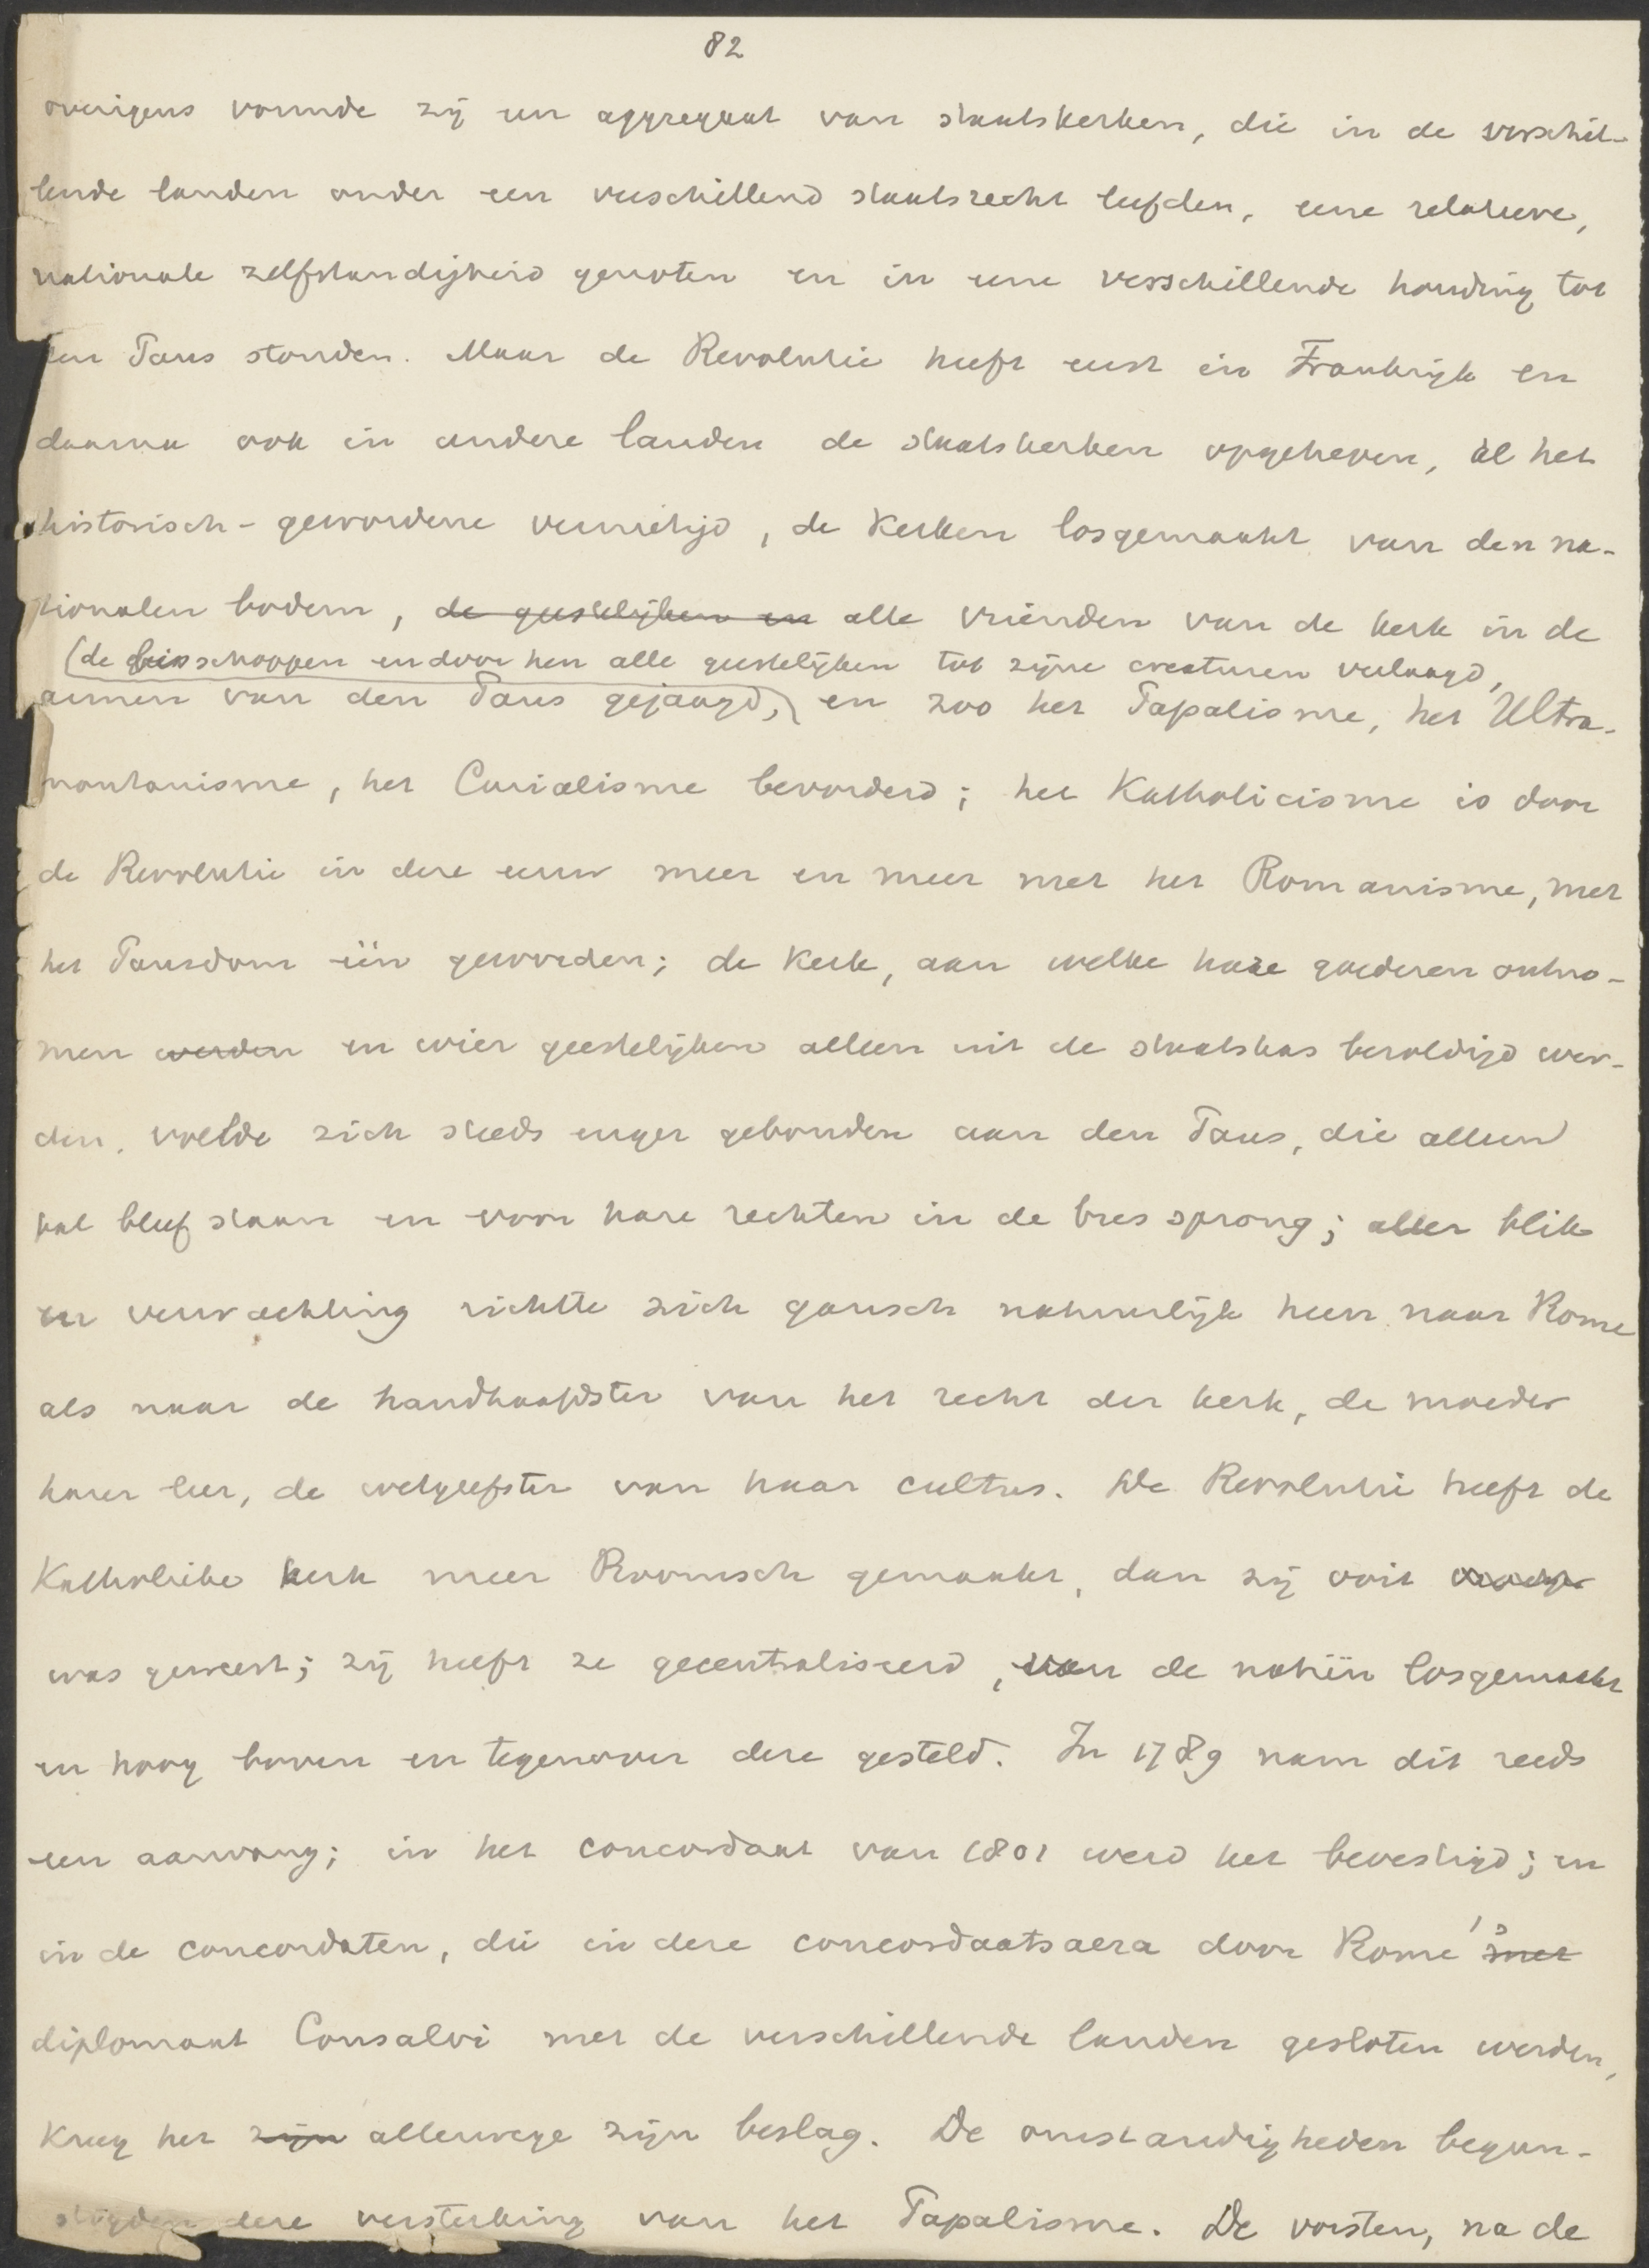 82
overigens vormde zij een aggregaat van staatskerken, die in de verschil-
lende landen onder een verschillend staatsrecht leefden, eene relatieve,
nationale zelfstandigheid genoten en in eene verschillende houding tot
den Paus stonden. Maar de Revolutie heeft eerst in Frankrijk en
daarna ook in andere landen de staatskerken opgeheven, al het
historisch-gewordene vernietigd, de kerken losgemaakt van den na-
tionalen bodem, de geestelijken en alle vrienden van de kerk in de
(de bisschoppen en door hen alle geestelijken tot zijne creaturen verlaagd,
armen van den Paus gejaagd, en zoo het Papalisme, het Ultra-
montanisme, het Curialisme bevorderd; het Katholicisme is door
de Revolutie in deze eeuw meer en meer met het Romanisme, met
het Pausdom één geworden; de Kerk, aan welke hare goederen ontno-
men werden en wier geestelijken alleen uit de staatskas bezoldigd wer-
den, voelde zich steeds enger gebonden aan den Paus, die alleen
pal bleef staan en voor hare rechten in de bres sprong; aller blik
en verwachting richtte zich gansch natuurlijk heen naar Rome
als naar de handhaafdster van het recht der kerk, de moeder
harer leer, de wetgeefster van haar cultus. De Revolutie heeft de
Katholieke kerk meer Roomsch gemaakt, dan zij ooit
was geweest; zij heeft ze gecentraliseerd, van de natiën losgemaakt
en hoog boven en tegenover deze gesteld. In 1789 nam dit reeds
een aanvang; in het concordaat van 1801 werd het bevestigd; en
in de concordaten, die in deze concordaatsaera door Rome's met
diplomaat Consalvi met de verschillende landen gesloten werden,
kreeg het zijn allerwege zijn beslag. De omstandigheden begun-
stigden deze versterking van het Papalisme. De vorsten, na de